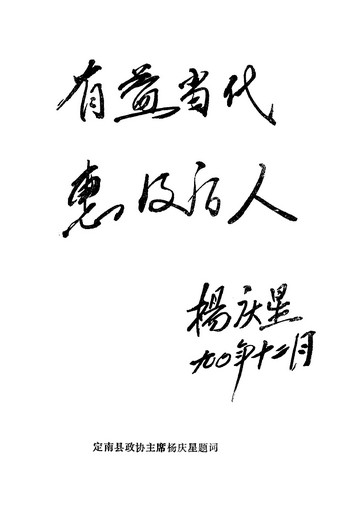 有益当代
惠及后人
杨庆星
九〇年十二月
定南县政协主席杨庆星题词